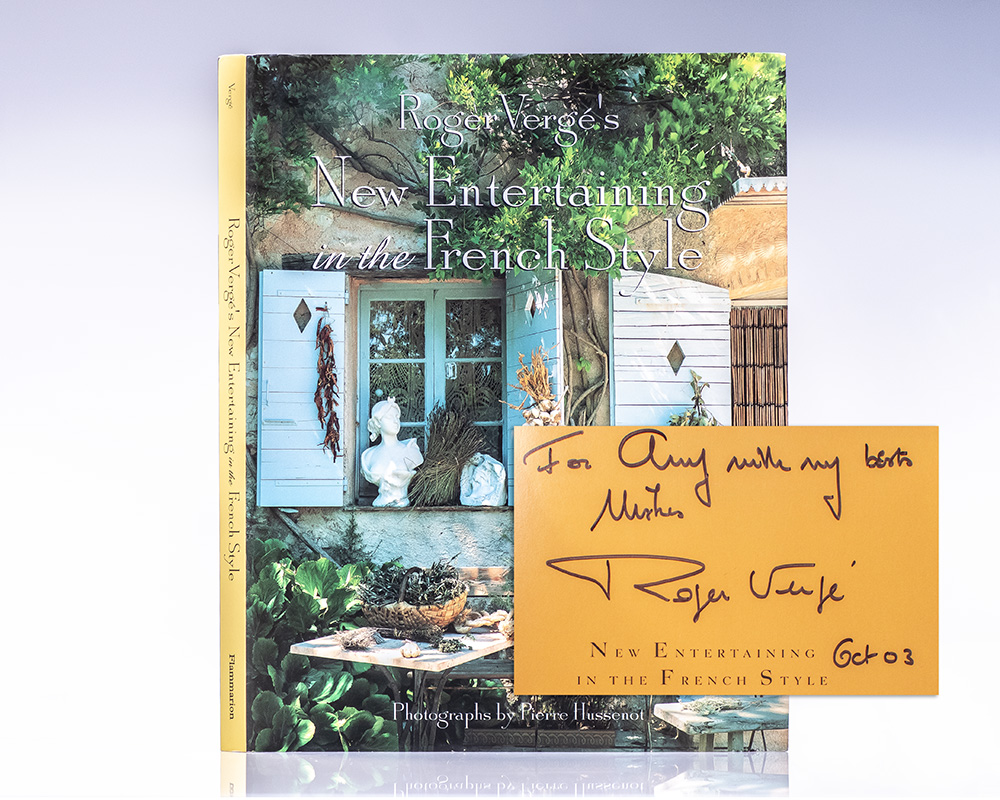 Vergé
Roger Vergé's New Entertaining in the French Style
Flammarion
Roger Vergé's
New Entertaining
in the French Style
Photographs by Pierre Hussenot
For Amy with my bests
Wishes
Roger Vergé
New Entertaining
in the French Style
Oct 03